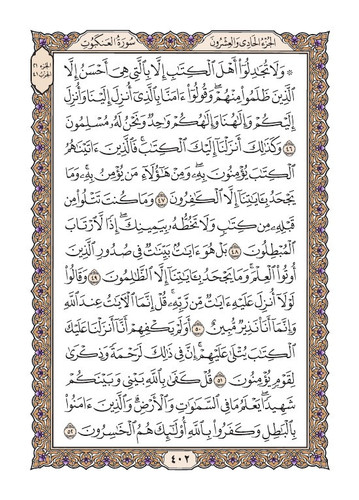 الجزء الحادي والعشرون
سورة العنكبوت
الجزء ٢١
الحزب ٤١
۞ وَلَا تُجَٰدِلُوٓا۟ أَهْلَ ٱلْكِتَٰبِ إِلَّا بِٱلَّتِى هِىَ أَحْسَنُ إِلَّا
ٱلَّذِينَ ظَلَمُوا۟ مِنْهُمْ ۖ وَقُولُوٓا۟ ءَامَنَّا بِٱلَّذِىٓ أُنزِلَ إِلَيْنَا وَأُنزِلَ
إِلَيْكُمْ وَإِلَٰهُنَا وَإِلَٰهُكُمْ وَٰحِدٌ وَنَحْنُ لَهُۥ مُسْلِمُونَ
٤٦ وَكَذَٰلِكَ أَنزَلْنَآ إِلَيْكَ ٱلْكِتَٰبَ ۚ فَٱلَّذِينَ ءَاتَيْنَٰهُمُ
ٱلْكِتَٰبَ يُؤْمِنُونَ بِهِۦ ۖ وَمِنْ هَٰٓؤُلَآءِ مَن يُؤْمِنُ بِهِۦ ۚ وَمَا
يَجْحَدُ بِـَٔايَٰتِنَآ إِلَّا ٱلْكَٰفِرُونَ ٤٧ وَمَا كُنتَ تَتْلُوا۟ مِن
قَبْلِهِۦ مِن كِتَٰبٍ وَلَا تَخُطُّهُۥ بِيَمِينِكَ ۖ إِذًا لَّٱرْتَابَ
ٱلْمُبْطِلُونَ ٤٨ بَلْ هُوَ ءَايَٰتٌۢ بَيِّنَٰتٌ فِى صُدُورِ ٱلَّذِينَ
أُوتُوا۟ ٱلْعِلْمَ ۚ وَمَا يَجْحَدُ بِـَٔايَٰتِنَآ إِلَّا ٱلظَّٰلِمُونَ ٤٩ وَقَالُوا۟
لَوْلَآ أُنزِلَ عَلَيْهِ ءَايَٰتٌ مِّن رَّبِّهِۦ ۖ قُلْ إِنَّمَا ٱلْءَايَٰتُ عِندَ ٱللَّهِ
وَإِنَّمَآ أَنَا۠ نَذِيرٌ مُّبِينٌ ٥٠ أَوَلَمْ يَكْفِهِمْ أَنَّآ أَنزَلْنَا عَلَيْكَ
ٱلْكِتَٰبَ يُتْلَىٰ عَلَيْهِمْ ۚ إِنَّ فِى ذَٰلِكَ لَرَحْمَةً وَذِكْرَىٰ
لِقَوْمٍ يُؤْمِنُونَ ٥١ قُلْ كَفَىٰ بِٱللَّهِ بَيْنِى وَبَيْنَكُمْ
شَهِيدًا ۖ يَعْلَمُ مَا فِى ٱلسَّمَٰوَٰتِ وَٱلْأَرْضِ ۗ وَٱلَّذِينَ ءَامَنُوا۟
بِٱلْبَٰطِلِ وَكَفَرُوا۟ بِٱللَّهِ أُو۟لَٰٓئِكَ هُمُ ٱلْخَٰسِرُونَ ٥٢
٤٠٢